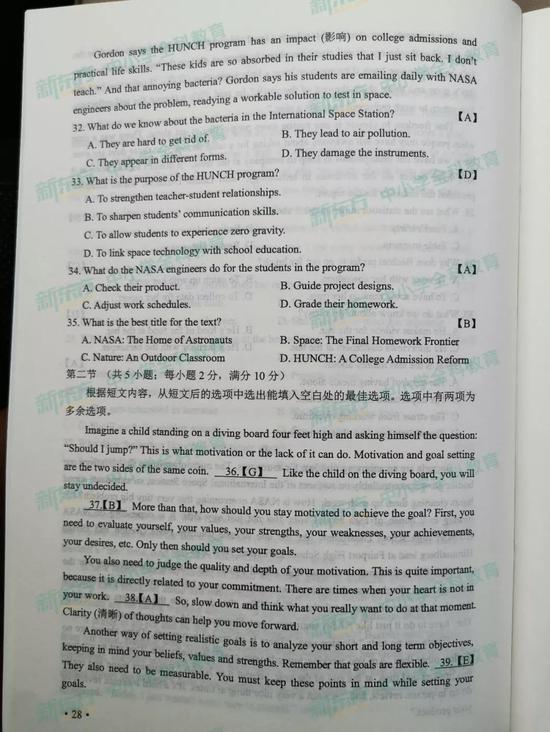 Gordon says the HUNCH program has an impact (影响) on college admissions and
practical life skills. "These kids are so absorbed in their studies that I just sit back. I don't
teach." And that annoying bacteria? Gordon says his students are emailing daily with NASA
engineers about the problem, readying a workable solution to test in space.
32. What do we know about the bacteria in the International Space Station? 【A】
A. They are hard to get rid of. B. They lead to air pollution.
C. They appear in different forms. D. They damage the instruments.
33. What is the purpose of the HUNCH program? 【D】
A. To strengthen teacher-student relationships.
B. To sharpen students' communication skills.
C. To allow students to experience zero gravity.
D. To link space technology with school education.
34. What do the NASA engineers do for the students in the program? 【A】
A. Check their product. B. Guide project designs.
C. Adjust work schedules. D. Grade their homework.
35. What is the best title for the text? 【B】
A. NASA: The Home of Astronauts B. Space: The Final Homework Frontier
C. Nature: An Outdoor Classroom D. HUNCH: A College Admission Reform
第二节 (共5小题;每小题2分,满分10分)
根据短文内容,从短文后的选项中选出能填入空白处的最佳选项。选项中有两项为
多余选项。
Imagine a child standing on a diving board four feet high and asking himself the question:
"Should I jump?" This is what motivation or the lack of it can do. Motivation and goal setting
are the two sides of the same coin. 36.【G】 Like the child on the diving board, you will
stay undecided.
37.【B】 More than that, how should you stay motivated to achieve the goal? First, you
need to evaluate yourself, your values, your strengths, your weaknesses, your achievements,
your desires, etc. Only then should you set your goals.
You also need to judge the quality and depth of your motivation. This is quite important,
because it is directly related to your commitment. There are times when your heart is not in
your work. 38.【A】 So, slow down and think what you really want to do at that moment.
Clarity (清晰) of thoughts can help you move forward.
Another way of setting realistic goals is to analyze your short and long term objectives,
keeping in mind your beliefs, values and strengths. Remember that goals are flexible. 39.【E】
They also need to be measurable. You must keep these points in mind while setting your
goals.
· 28 ·
新东方 中小学全科教育